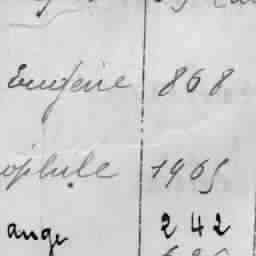 Eugénie 868
ophile 1905
ange 242